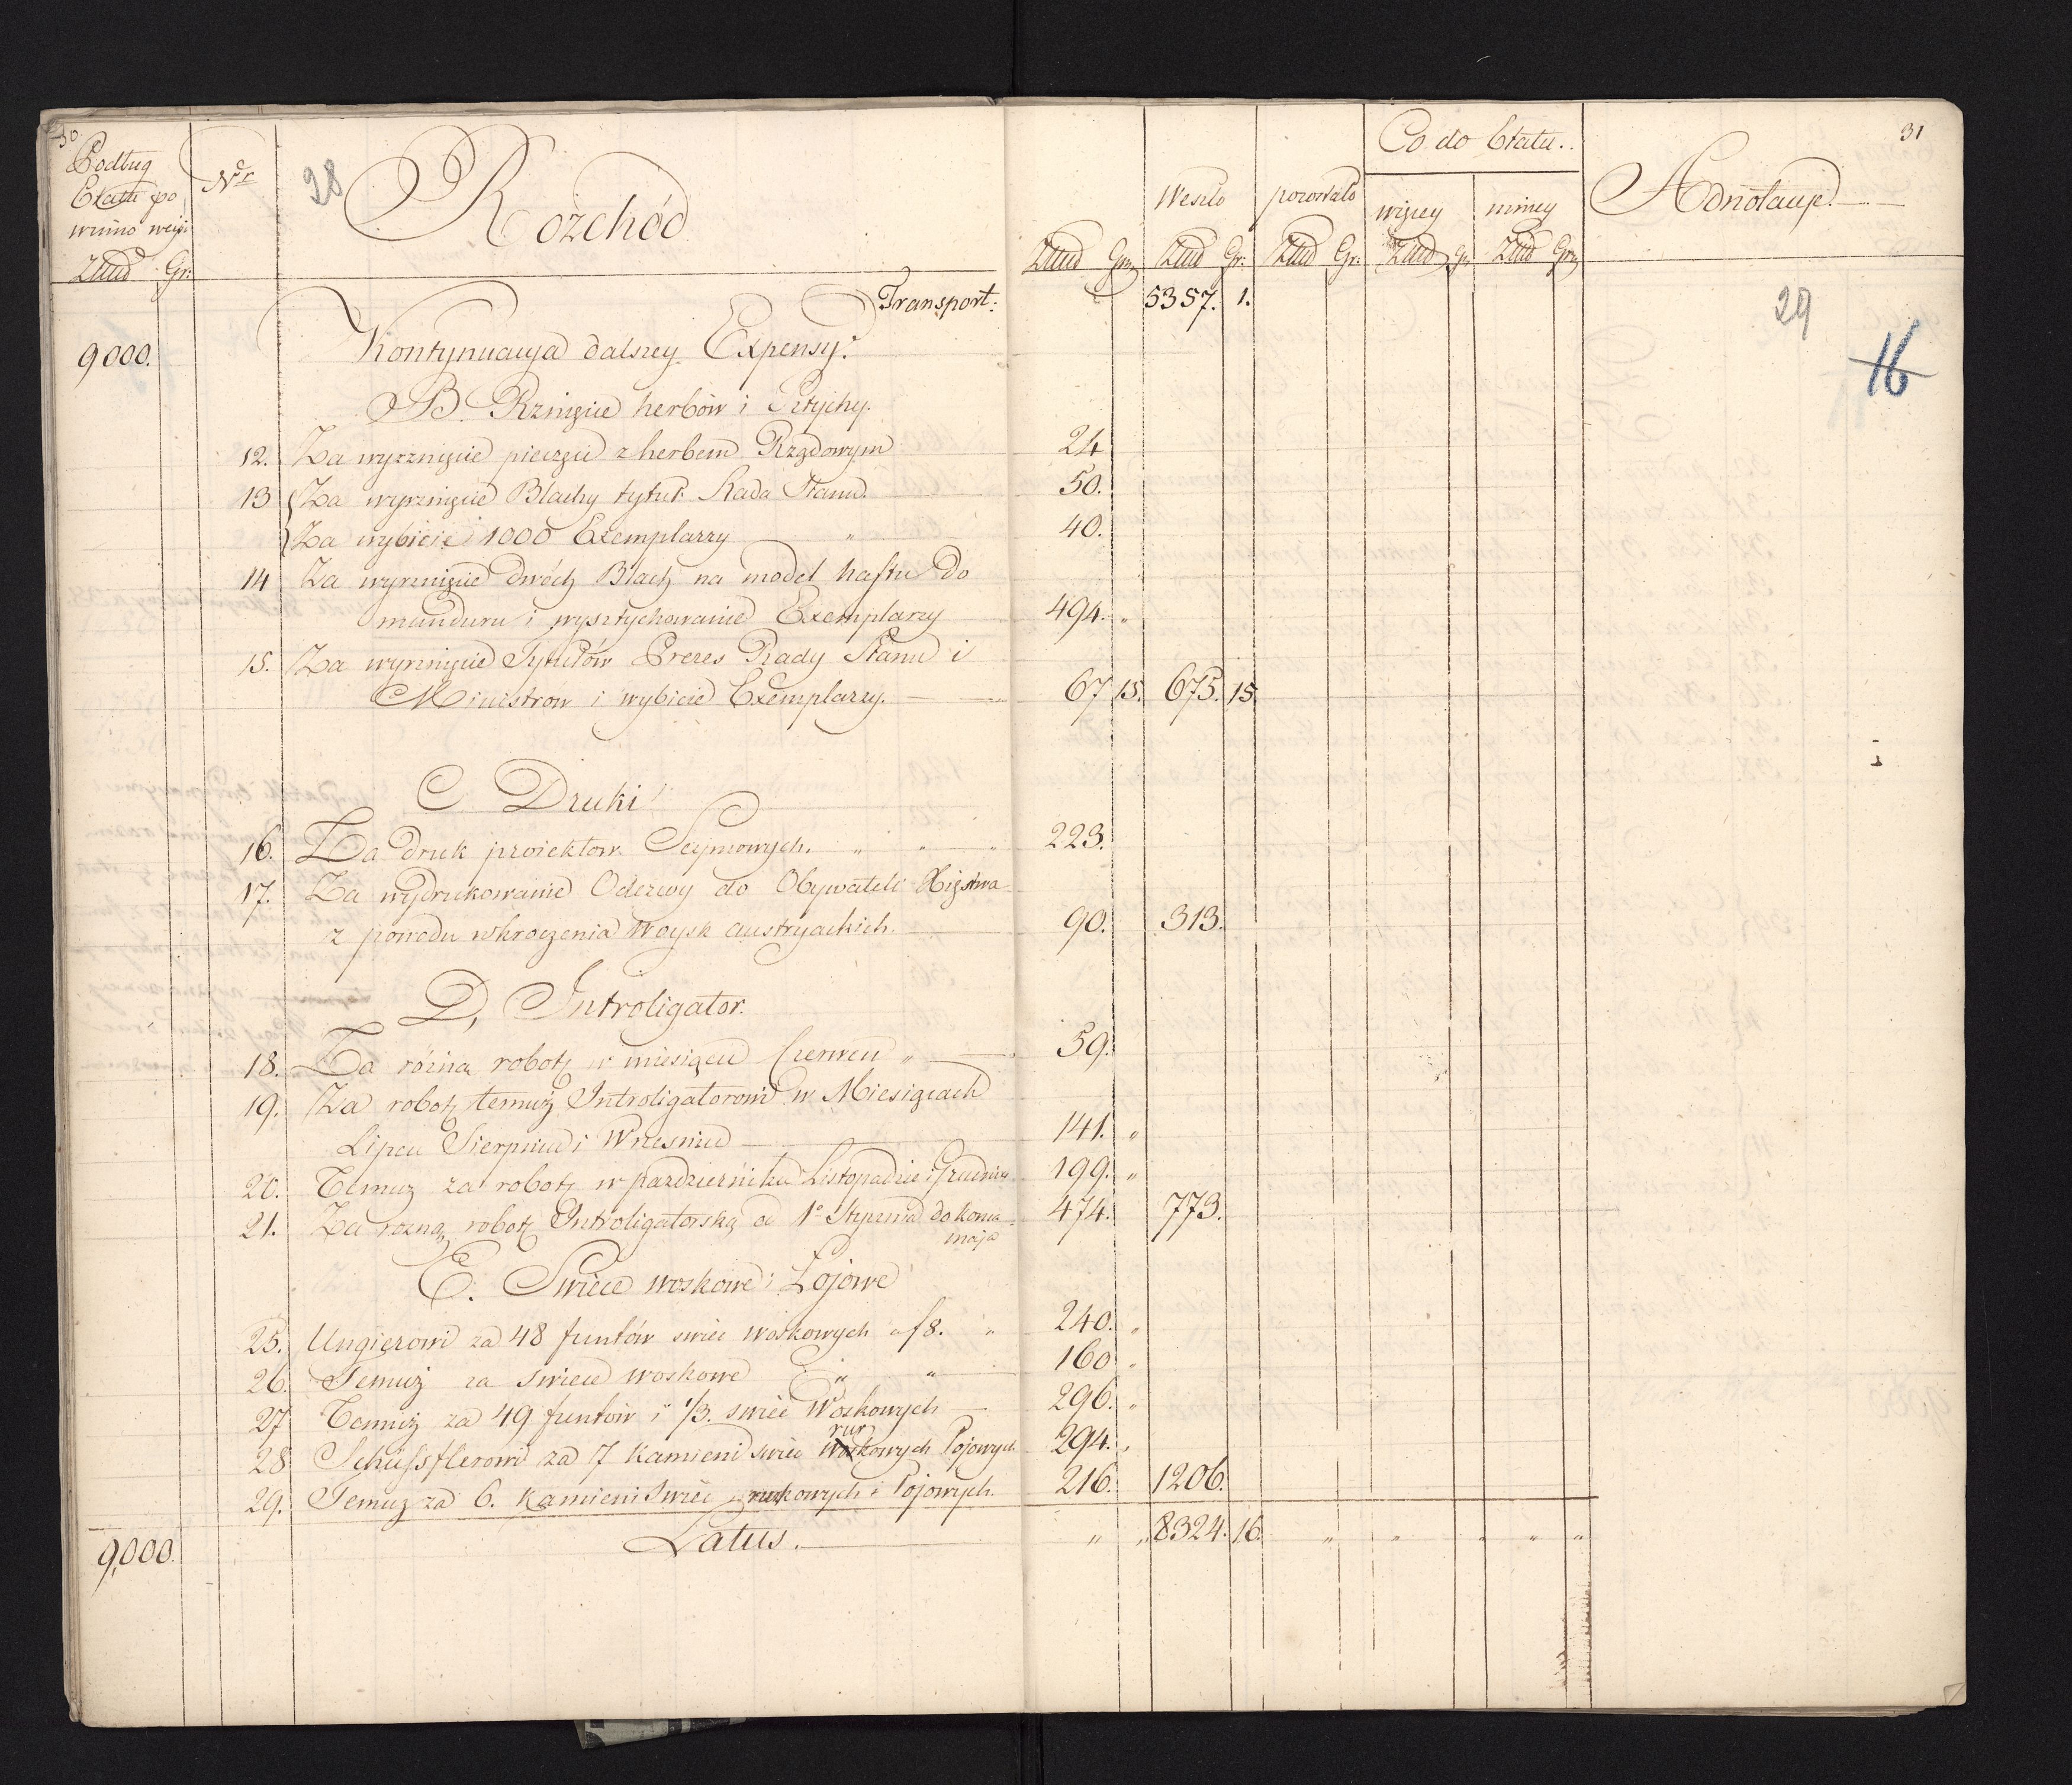 30.
Podług
Etatu po
winno weyś
Złłud Gr:
Nr
28
Rozchód
Weszło
pozostało
Co do Etatu..
więcey
mniey
Złłud Grz Złłud Gr: Złłud Gr: Złłud Gr Złłud Grz
Adnotacye
31
Transport: 5357. 1.
29
16
9000. Kontynuacya dalszey Expensy.
B. Rznięcie herbów i Sztychy.
12. Za wyrznięcie pieczęci z herbem Rządowym 24
13 Za wyrznięcie Blachy tytuł Rada Stanu. 50.
Za wybicie 1000 Exemplarzy " 40.
14 Za wyrznięcie dwóch Blach na model haftu do
munduru i wysztychowanie Exemplarzy 494. "
15. Za wyrznięcie Tytułów Prezes Rady Stanu i
Ministrów i wybicie Exemplarzy. 67 15. 675. 15
C Druki
16. Za druk proiektów Seymowych. " " " 223.
17. Za wydrukowanie Odezwy do Obywateli Xięstwa
z powodu wkroczenia Woysk austryackich. 90. 313.
D, Introligator.
18. Za różną robotę w miesiącu Czerwcu " 59.
19. Za robotę temuż Introligatorowi w Miesiącach
Lipcu Sierpniu i Wrześniu 141. "
20. Temuz za robotę w pazdzierniku Listopadzie i Grudniu 199. "
21. Za rozną robotę Introligatorską od 1o Stycznia do końca 474. 773.
maja
E. Swiece woskowe i Łojowe
25. Ungierowi za 48 funtów swiec woskowych a f 8. " 240. "
26. Temuż za swiece woskowe " " 160 "
27 Temuż za 49 funtów i 1/3. swiec Woskowych 296. "
rur
28 Schüssflerowi za 7 kamieni swiec woskowych Łojowych 294. "
29. Temuz za 6. kamieni Swiec rurkowych i Łojowych. 216. 1206.
9,000. Latus. " " 8324. 16. " " " " "